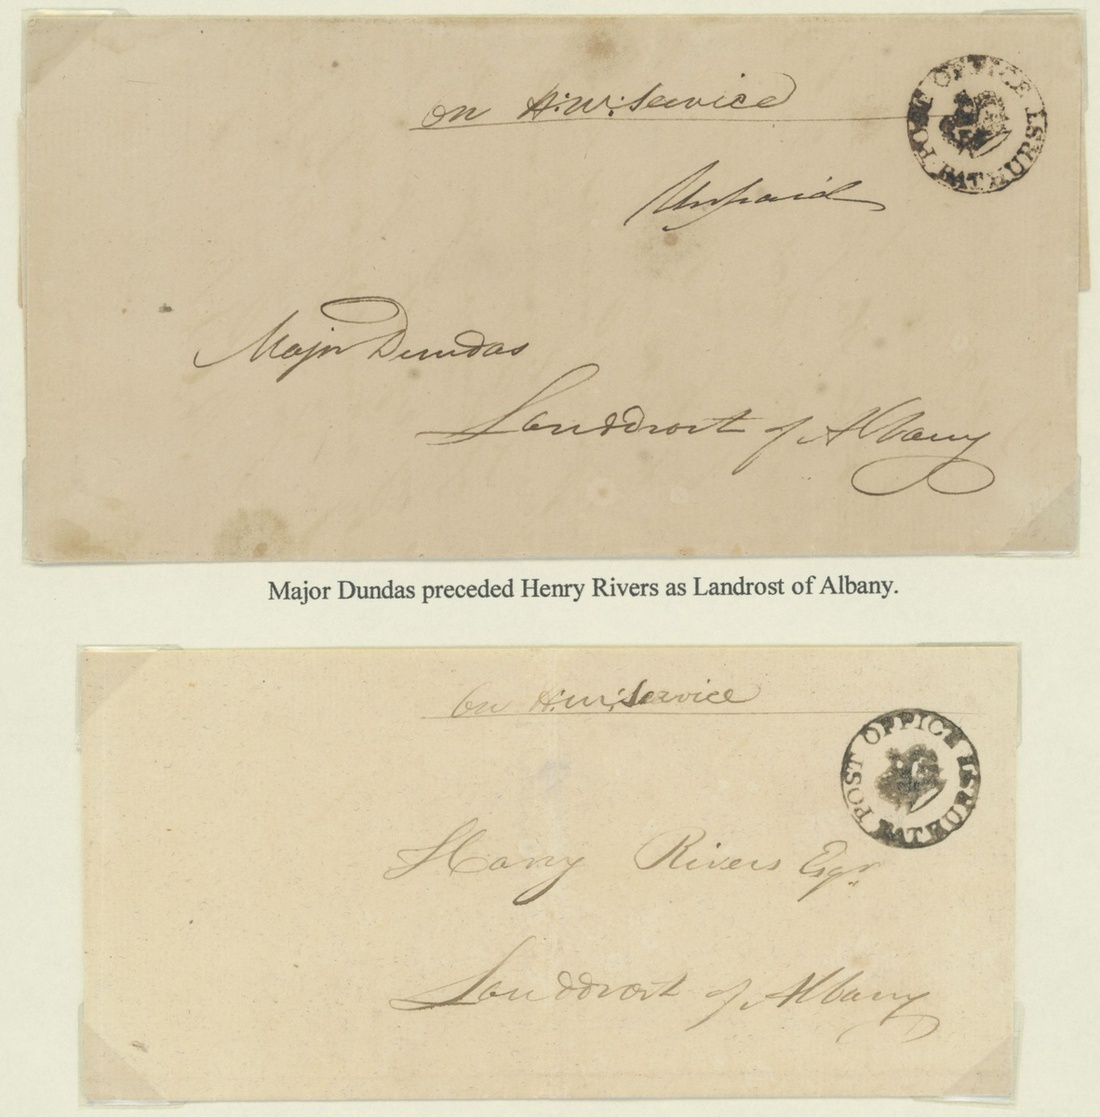 On H:M: Service
POST OFFICE BATHURST
Unpaid
Major Dundas
Landdrost of Albany
Major Dundas preceded Henry Rivers as Landrost of Albany.
On H:M: Service
POST OFFICE BATHURST
Harry Rivers Esqr.
Landdrost of Albany